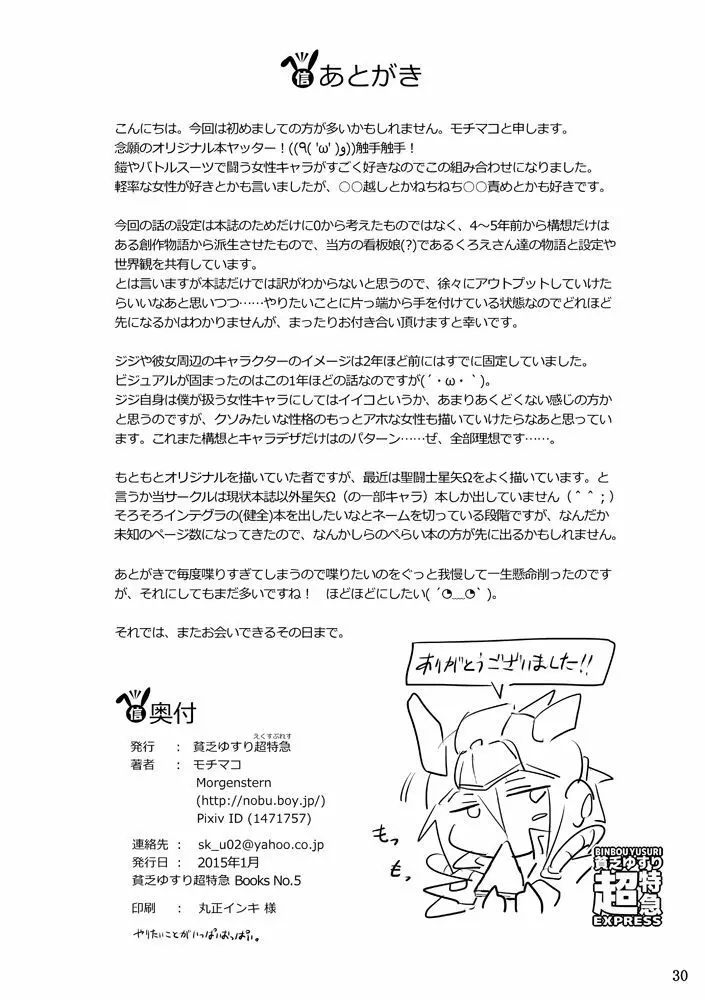 信 あとがき
こんにちは。今回は初めましての方が多いかもしれません。モチマコと申します。
念願のオリジナル本ヤッター！((٩( 'ω' )و))触手触手！
鎧やバトルスーツで闘う女性キャラがすごく好きなのでこの組み合わせになりました。
軽率な女性が好きとかも言いましたが、○○越しとかねちねち○○責めとかも好きです。
今回の話の設定は本誌のためだけに0から考えたものではなく、4～5年前から構想だけは
ある創作物語から派生させたもので、当方の看板娘(?)であるくろえさん達の物語と設定や
世界観を共有しています。
とは言いますが本誌だけでは訳がわからないと思うので、徐々にアウトプットしていけた
らいいなあと思いつつ……やりたいことに片っ端から手を付けている状態なのでどれほど
先になるかはわかりませんが、まったりお付き合い頂けますと幸いです。
ジジや彼女周辺のキャラクターのイメージは2年ほど前にはすでに固定していました。
ビジュアルが固まったのはこの1年ほどの話なのですが(´・ω・｀)。
ジジ自身は僕が扱う女性キャラにしてはイイコというか、あまりあくどくない感じの方か
と思うのですが、クソみたいな性格のもっとアホな女性も描いていけたらなあと思ってい
ます。これまた構想とキャラデザだけはのパターン……ぜ、全部理想です……。
もともとオリジナルを描いていた者ですが、最近は聖闘士星矢Ωをよく描いています。と
言うか当サークルは現状本誌以外星矢Ω（の一部キャラ）本しか出していません（＾＾；）
そろそろインテグラの(健全)本を出したいなとネームを切っている段階ですが、なんだか
未知のページ数になってきたので、なんかしらのぺらい本の方が先に出るかもしれません。
あとがきで毎度喋りすぎてしまうので喋りたいのをぐっと我慢して一生懸命削ったのです
が、それにしてもまだ多いですね！　ほどほどにしたい( ´◔‿◔` )。
それでは、またお会いできるその日まで。
ありがとうございました!!
もっ
もっ
BINBOUYUSURI
貧乏ゆすり
超特急
EXPRESS
信 奥付
えくすぷれす
発行　：　貧乏ゆすり超特急
著者　：　モチマコ
Morgenstern
(http://nobu.boy.jp/)
Pixiv ID (1471757)
連絡先：　sk_u02@yahoo.co.jp
発行日：　2015年1月
貧乏ゆすり超特急 Books No.5
印刷　：　丸正インキ 様
やりたいことがいっぱいおっぱい。
30